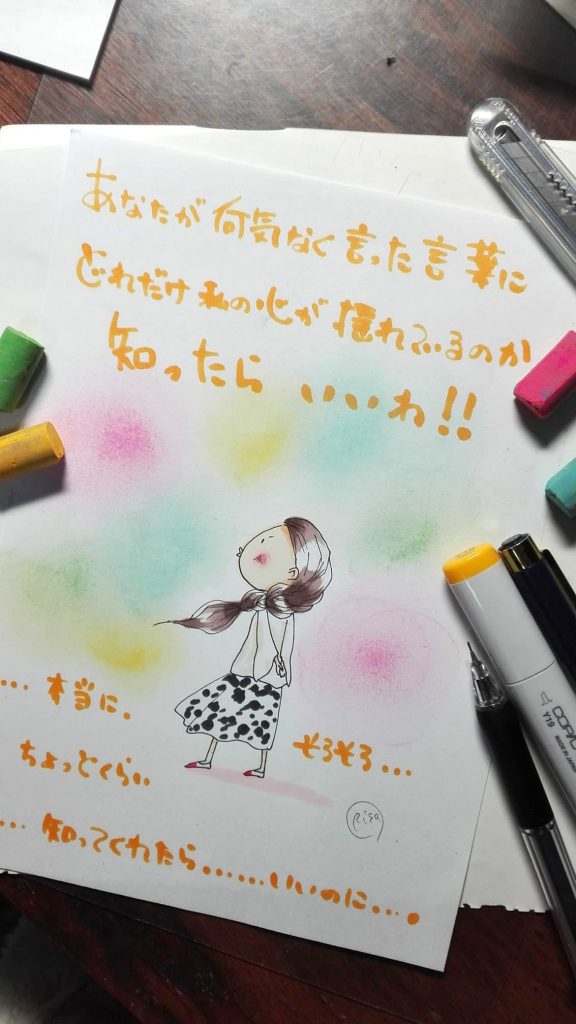 あなたが何気なく言った言葉に
どれだけ私の心が壊れているのか
知ったらいいわ!!
... 本当に.
そろそろ...
ちょっとくらい
... 知ってくれたら......いいのに....
COPIC
MADE IN JAPAN
Y19